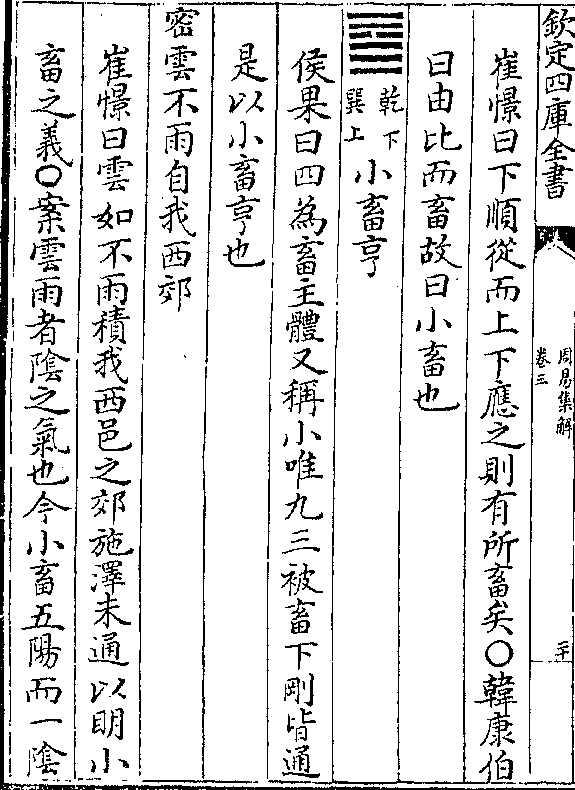 欽定四庫全書
周易集解
卷三
二十
崔憬曰下順從而上下應之則有所畜矣○韓康伯
曰由比而畜故曰小畜也
乾下
巽上
小畜亨
侯果曰四為畜主體又稱小唯九三被畜下剛皆通
是以小畜亨也
密雲不雨自我西郊
崔憬曰雲如不雨積我西邑之郊施澤未通以明小
畜之義○案雲雨者陰之氣也今小畜五陽而一陰